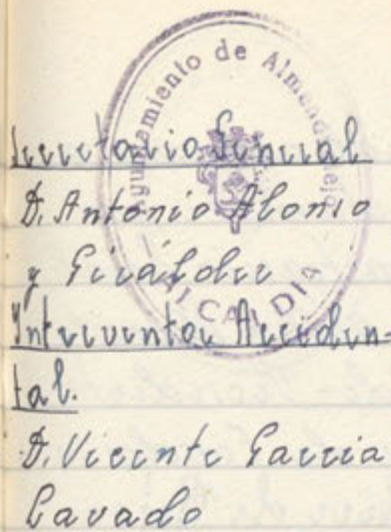 Ayuntamiento de Almendralejo
ALCALDIA
Secretario General
D. Antonio Alonso
y Giráldez
Interventor Acciden-
tal.
D. Vicente Garcia
Cavado